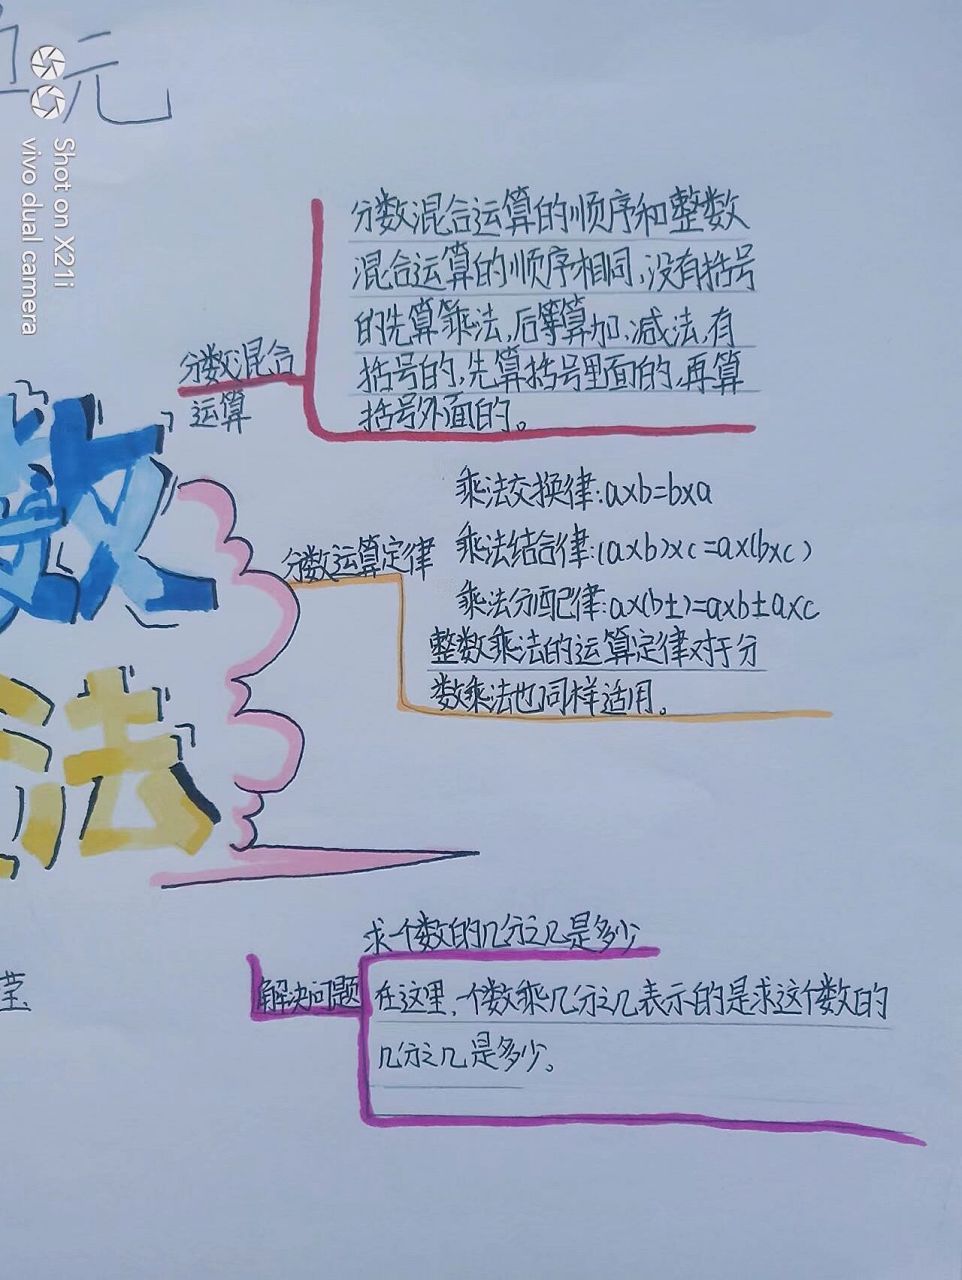 元
Shot on X21i
vivo dual camera
分数混合运算的顺序和整数
混合运算的顺序相同,没有括号
的先算乘法,后算加、减法,有
括号的,先算括号里面的,再算
括号外面的。
分数混合
运算
乘法交换律:a×b=b×a
乘法结合律:(a×b)×c=a×(b×c)
乘法分配律:a×(b±)=a×b±a×c
分数运算定律
整数乘法的运算定律对于分
数乘法也同样适用。
数
法
求一个数的几分之几是多少
解决问题
在这里,一个数乘几分之几表示的是求这个数的
几分之几是多少。
莹